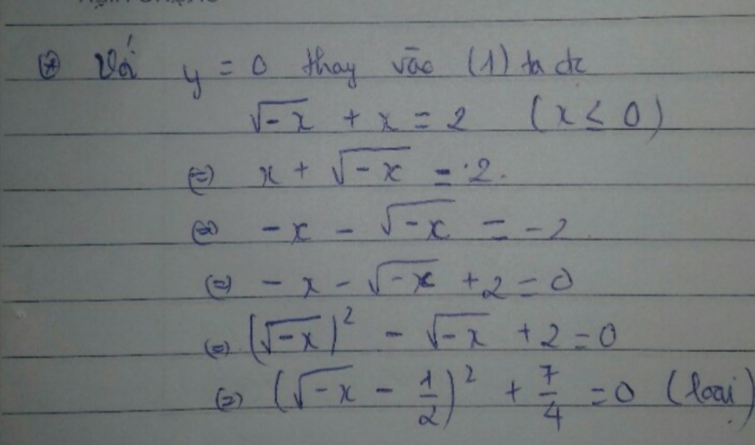 ⊛ Với y = 0 thay vào (1) ta đc
√-x + x = 2 (x ≤ 0)
(=) x + √-x = 2.
(=) -x - √-x = -2
(=) -x - √-x + 2 = 0
(=) (√-x)² - √-x + 2 = 0
(=) (√-x - 1/2)² + 7/4 = 0 (loại)